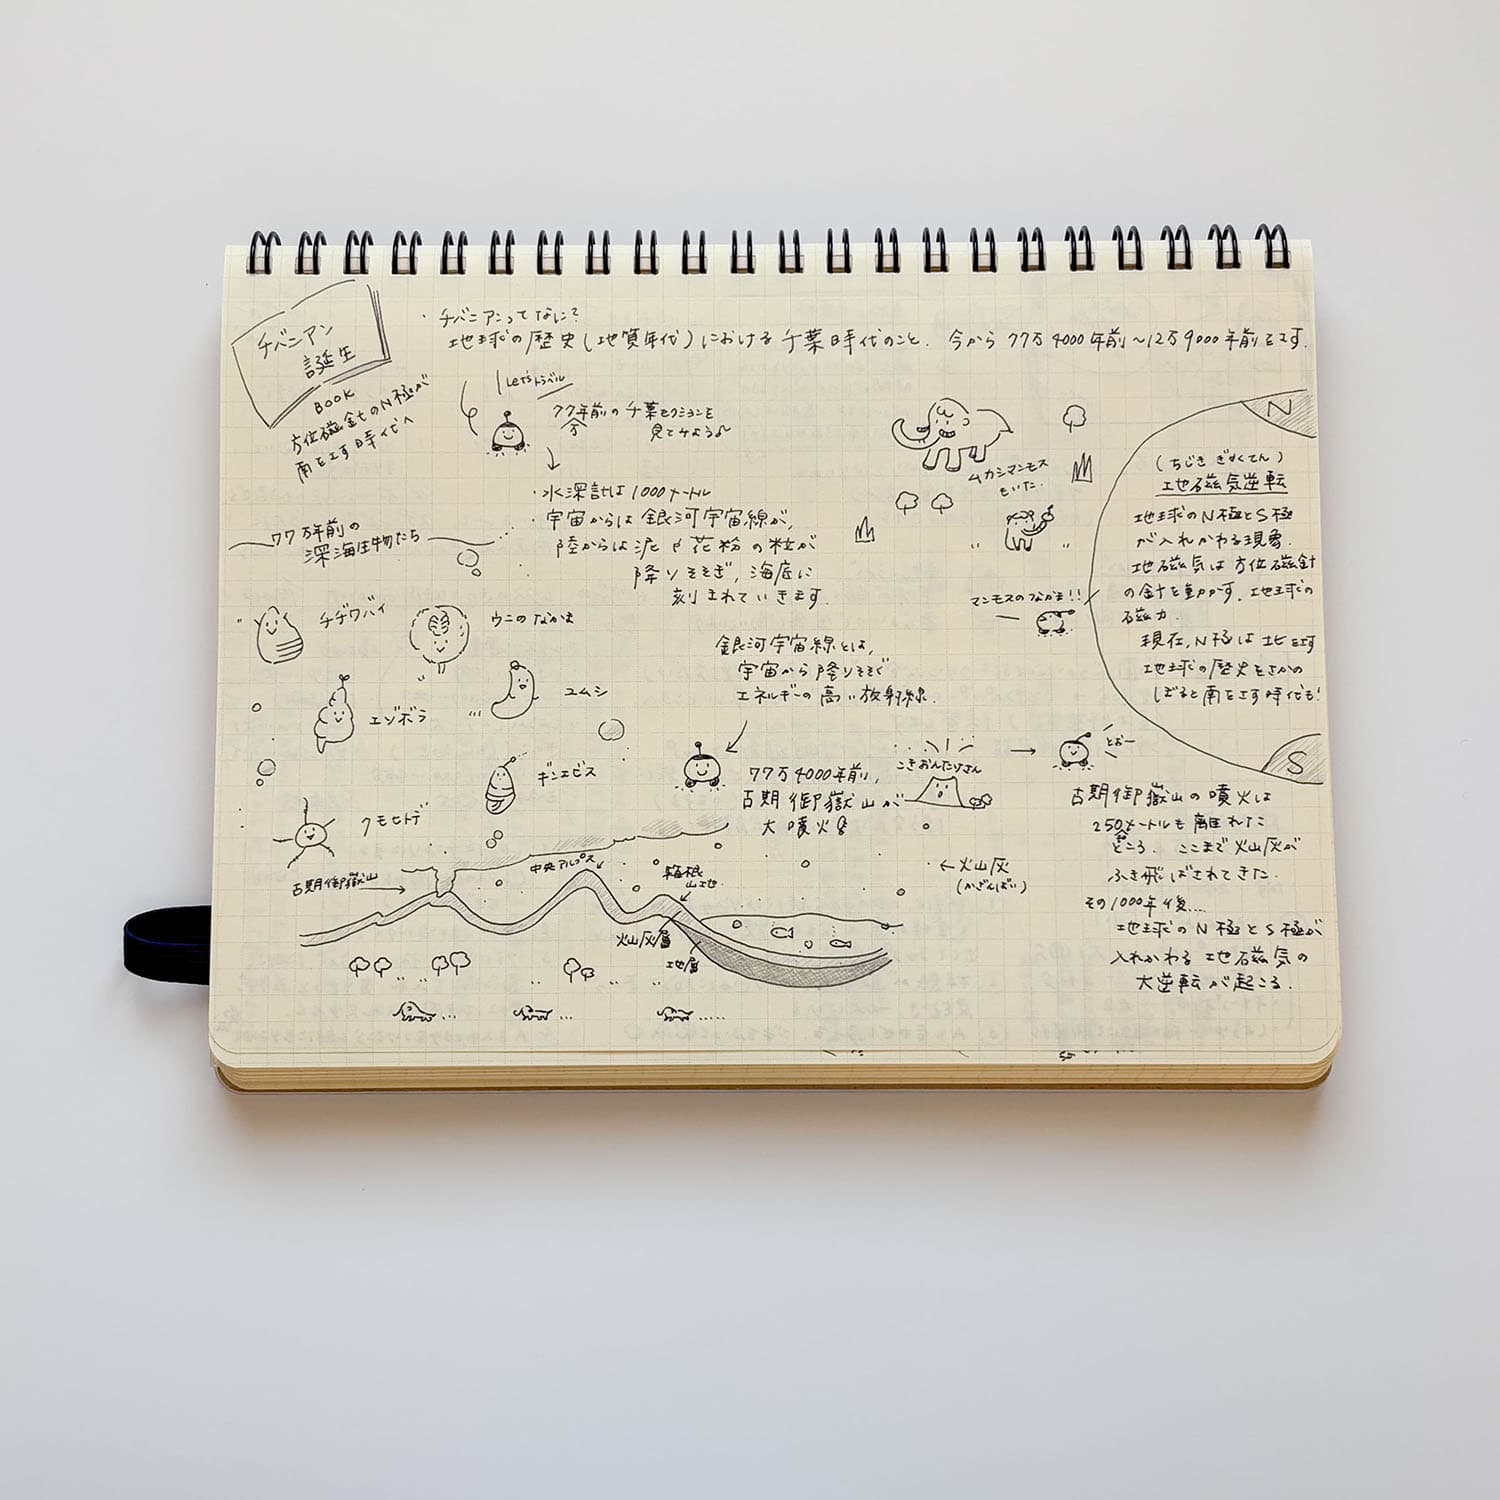 チバニアン
誕生
BOOK
方位磁金のN極が
南をエす時代へ
・チバニアンってなに?
地球の歴史(地質年代)における千葉時代のこと. 今から77万4000年前〜12万9000年前をエす.
Let'sトラベル
77万年前の千葉セクションを
見てみよう♪
・水深計は1000メートル
・宇宙からは銀河宇宙線が,
陸からは泥や花粉の粒が
降りそそぎ, 海底に
刻まれていきます.
77万年前の
深海生物たち
チヂワバイ
ウニのなかま
エゾボラ
ユムシ
ギンエビス
クモヒトデ
銀河宇宙線とは,
宇宙から降りそそぐ
エネルギーの高い放射線.
ムカシマンモス
もいた.
マンモスのなかま!!
N
(ちじき ぎゃくてん)
地磁気逆転
地球のN極とS極
が入れかわる現象.
地磁気は方位磁針
の針を動かす, 地球の
磁力.
現在, N極は北をエす
地球の歴史をさかの
ぼると南をエす時代も!
S
77万4000年前,
古期御嶽山が
大噴火!
こきおんたけさん
とおー
古期御嶽山の噴火は
250メートルも離れたと
ころ. ここまで火山灰が
ふき飛ばされてきた.
その1000年後....
地球のN極とS極が
入れかわる地磁気の
大逆転が起こる.
←火山灰
(かざんばい)
古期御嶽山
中央アルプス
箱根
山地
火山灰層
地層